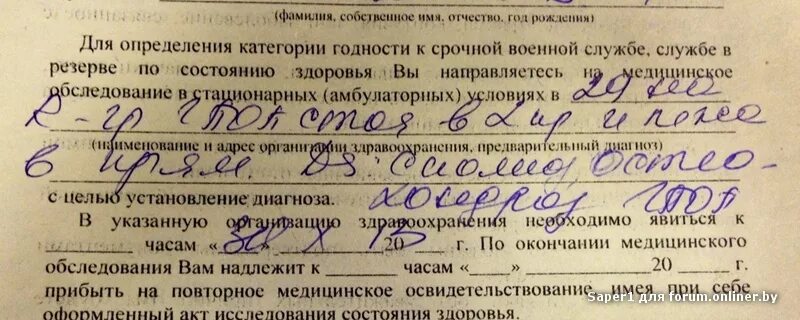 (фамилия, собственное имя, отчество, год рождения)
Для определения категории годности к срочной военной службе, службе в
резерве по состоянию здоровья Вы направляетесь на медицинское
обследование в стационарных (амбулаторных) условиях в
R-гр стоп стоя в 2 пр и
(наименование и адрес организации здравоохранения, предварительный диагноз)
в прям. Ds: остео-
с целью установление диагноза. хондроз стоп
В указанную организацию здравоохранения необходимо явиться к
часам « » X 13 20 г. По окончании медицинского
обследования Вам надлежит к часам « » 20 г.
прибыть на повторное медицинское освидетельствование, имея при себе
оформленный акт исследования состояния здоровья.
Saper1 для forum.onliner.by